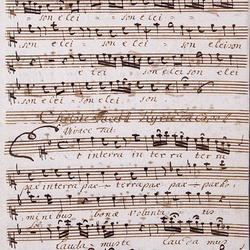 son e lei son e lei
son e lei son e lei son
e lei son e lei
son e lei son e lei son.
Vivace Tutti
Et in terra in ter ra ter ra
pax in terra pax terra pax pax ho
mini bus bonae volunta tis
Lauda mus te Lau da mus